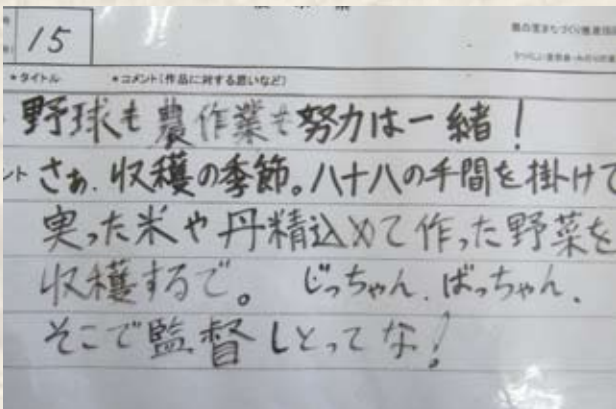 15
*タイトル *コメント(作品に対する思いなど)
野球も農作業も努力は一緒!
さぁ、収穫の季節。八十八の手間を掛けて
実った米や丹精込めて作った野菜を
収穫するで。 じっちゃん、ばっちゃん、
そこで監督しとってな!